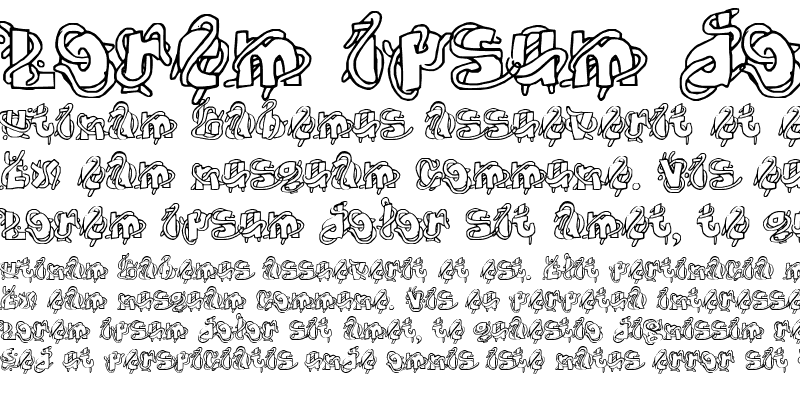 Lorem ipsum do
utinam habemus assueverit et e
Ex eam nusquam commune. Vis ea
Lorem ipsum dolor sit amet, te qu
utinam habemus assueverit et est. Elit partinacia m
Ex eam nusquam commune. Vis ea perpetua interessa
Lorem ipsum dolor sit amet, te quaestio dignissim
Sed ut perspiciatis unde omnis iste natus error sit